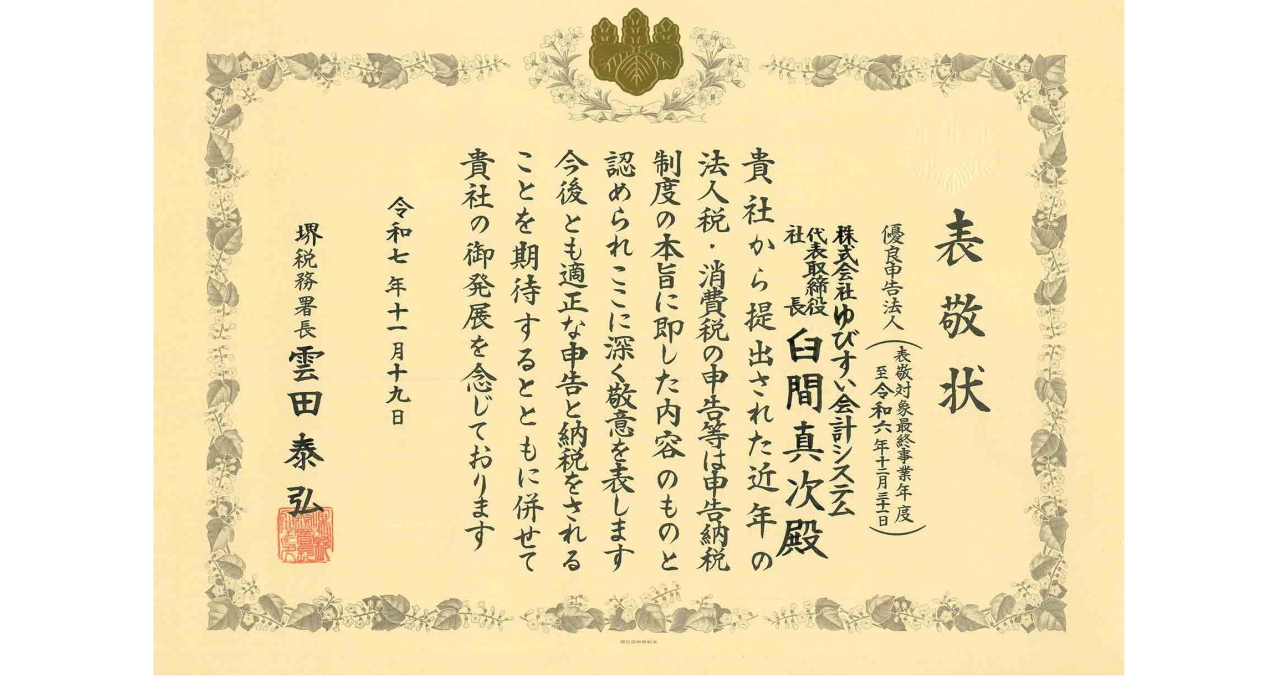 表敬状
優良申告法人
（表敬対象最終事業年度
至令和六年十二月三十一日）
株式会社ゆびすい会計システム
代表取締役
社長
臼間真次殿
貴社から提出された近年の
法人税・消費税の申告等は申告納税
制度の本旨に即した内容のものと
認められここに深く敬意を表します
今後とも適正な申告と納税をされる
ことを期待するとともに併せて
貴社の御発展を念じております
令和七年十一月十九日
堺税務署長 雲田泰弘